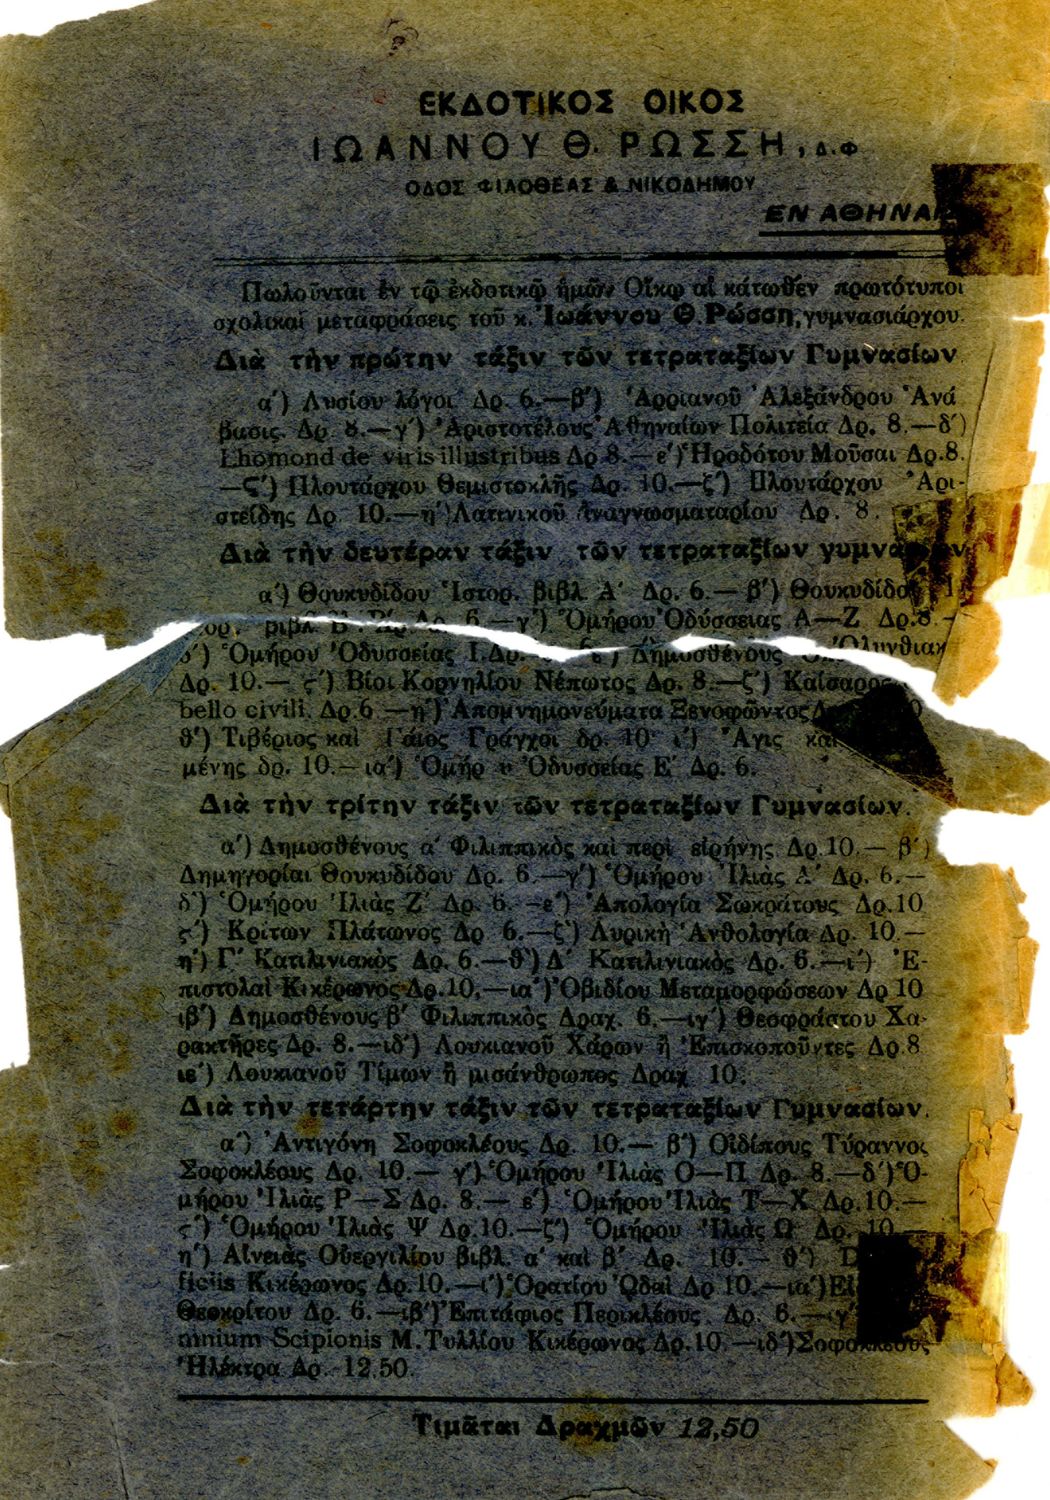 ΕΚΔΟΤΙΚΟΣ ΟΙΚΟΣ
ΙΩΑΝΝΟΥ Θ. ΡΩΣΣΗ, Δ.Φ
ΟΔΟΣ ΦΙΛΟΘΕΑΣ & ΝΙΚΟΔΗΜΟΥ
ΕΝ ΑΘΗΝΑΙ
Πωλοῦνται ἐν τῷ ἐκδοτικῷ ἡμῶν Οἴκῳ αἱ κάτωθεν πρωτότυποι
σχολικαὶ μεταφράσεις τοῦ κ. Ἰωάννου Θ. Ρώσση, γυμνασιάρχου.
Διὰ τὴν πρώτην τάξιν τῶν τετραταξίων Γυμνασίων
α΄) Λυσίου λόγοι Δρ. 6.—β΄) Ἀρριανοῦ Ἀλεξάνδρου Ἀνά
βασις. Δρ 8.—γ΄) Ἀριστοτέλους Ἀθηναίων Πολιτεία Δρ. 8.—δ΄)
Lhomond de viris illustribus Δρ 8.—ε΄) Ἡροδότου Μοῦσαι Δρ.8.
—Ϛ΄) Πλουτάρχου Θεμιστοκλῆς Δρ. 10.—ζ΄) Πλουτάρχου Ἀρι-
στείδης Δρ. 10.—η΄) Λατινικοῦ Ἀναγνωσματαρίου Δρ. 8.
Διὰ τὴν δευτέραν τάξιν τῶν τετραταξίων
α΄) Θουκυδίδου Ἱστορ. βιβλ. Α΄ Δρ. 6.— β΄)
βιβλ Β΄. Δρ. 6 —γ΄) Ὁμήρου Ὀδύσσειας Α—Ζ Δρ.8.-
δ΄) Ὁμήρου Ὀδυσσείας Δημοσθένους
Δρ. 10.— ς΄) Βίοι Κορνηλίου Νέπωτος Δρ. 8.—ζ΄) Καίσαρος
bello civili. Δρ.6 —η΄) Ἀπομνημονεύματα Ξενοφῶντος
θ΄) Τιβέριος καὶ Γάιος Γράγχοι δρ. 10 ι΄) Ἄγις
μένης δρ. 10.— ια΄) Ὁμήρ υ Ὀδυσσείας Ε΄ Δρ. 6.
Διὰ τὴν τρίτην τάξιν τῶν τετραταξίων Γυμνασίων.
α΄) Δημοσθένους α΄ Φιλιππικὸς καὶ περὶ εἰρήνης Δρ.10.— β΄)
Δημηγορίαι Θουκυδίδου Δρ. 6.—γ΄) Ὁμήρου Ἰλιὰς Α΄ Δρ. 6.—
δ΄) Ὁμήρου Ἰλιὰς Ζ΄ Δρ. 6. —ε΄) Ἀπολογία Σωκράτους Δρ.10
ς΄) Κρίτων Πλάτωνος Δρ 6.—ζ΄) Λυρικὴ Ἀνθολογία Δρ. 10.—
η΄) Γ΄ Κατιλινιακὸς Δρ. 6.—θ΄) Δ΄ Κατιλινιακὸς Δρ. 6.—ι΄) Ἐ-
πιστολαὶ Κικέρωνος Δρ.10,—ια΄) Ὀβιδίου Μεταμορφώσεων Δρ 10
ιβ΄) Δημοσθένους β΄ Φιλιππικὸς Δραχ. 6.—ιγ΄) Θεοφράστου Χα-
ρακτῆρες Δρ. 8.—ιδ΄) Λουκιανοῦ Χάρων ἢ Ἐπισκοποῦντες Δρ.8
ιε΄) Λουκιανοῦ Τίμων ἢ μισάνθρωπος Δραχ 10.
Διὰ τὴν τετάρτην τάξιν τῶν τετραταξίων Γυμνασίων.
α΄) Ἀντιγόνη Σοφοκλέους Δρ. 10.— β΄) Οἰδίπους Τύραννος
Σοφοκλέους Δρ. 10.— γ΄) Ὁμήρου Ἰλιὰς Ο—Π Δρ. 8.—δ΄) Ὁ-
μήρου Ἰλιὰς Ρ—Σ Δρ. 8.— ε΄) Ὁμήρου Ἰλιὰς Τ—Χ Δρ.10.—
ς΄) Ὁμήρου Ἰλιὰς Ψ Δρ.10.—ζ΄) Ὁμήρου Ἰλιὰς Ω Δρ. 10.—
η΄) Αἰνειὰς Οὐεργιλίου βιβλ. α΄ καὶ β΄ Δρ. 10.— θ΄)
ficiis Κικέρωνος Δρ.10.—ι΄) Ὁρατίου Ὠδαὶ Δρ 10.—ια΄)
Θεοκρίτου Δρ. 6.—ιβ΄) Ἐπιτάφιος Περικλέους Δρ. 6.—ιγ΄
mnium Scipionis Μ. Τυλλίου Κικέρωνος Δρ.10.—ιδ΄) Σοφοκλέους
Ἠλέκτρα Δρ. 12.50.
Τιμᾶται Δραχμῶν 12,50